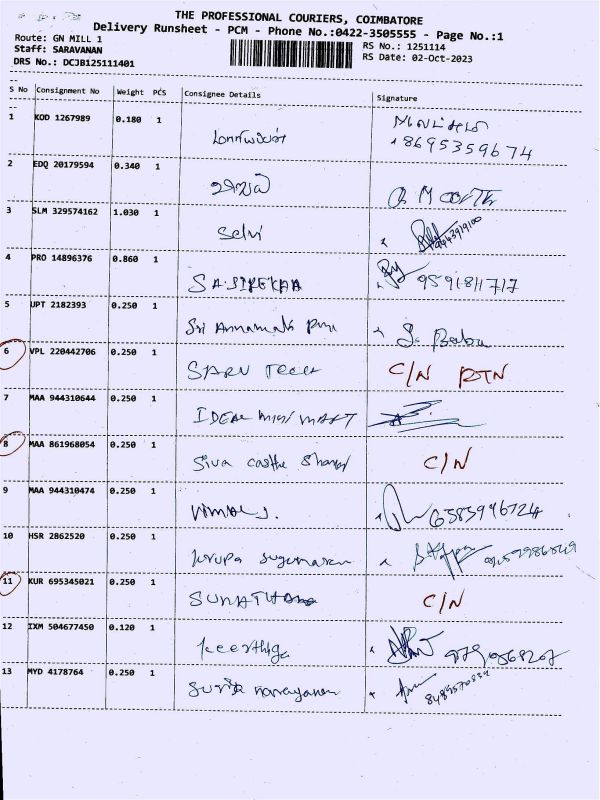 THE PROFESSIONAL COURIERS, COIMBATORE
Delivery Runsheet - PCM - Phone No.:0422-3505555 - Page No.:1
Route: GN MILL 1
RS No.: 1251114
Staff: SARAVANAN
RS Date: 02-Oct-2023
DRS No.: DCJB125111401
S No Consignment No Weight PCS Consignee Details Signature
1 KOD 1267989 0.180 1
8695359674
2 EDQ 20179594 0.340 1
3 SLM 329574162 1.030 1
Selvi
4 PRO 14896376 0.860 1
SASIREKHA 9591811717
5 UPT 2182393 0.250 1
Sri Annamalai
6 VPL 220442706 0.250 1
SARU Tech C/N RTN
7 MAA 944310644 0.250 1
IDEAL MINI MART
8 MAA 861968054 0.250 1
Siva C/N
9 MAA 944310474 0.250 1
VIMAL J. 6383946724
10 HSR 2862520 0.250 1
krupa sugumaran
11 KUR 695345021 0.250 1
C/N
12 IXM 504677450 0.120 1
keerthiga
13 MYD 4178764 0.250 1
narayanan